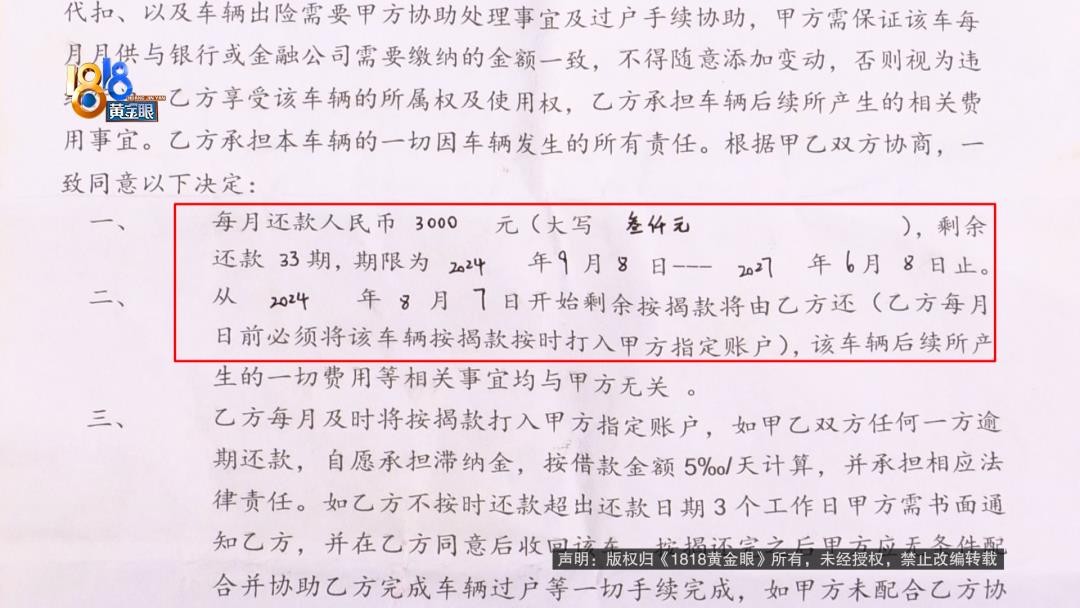 代扣、以及车辆出险需要甲方协助处理事宜及过户手续协助，甲方需保证该车每
月月供与银行或金融公司需要缴纳的金额一致，不得随意添加变动，否则视为违
1818
黄金眼
乙方享受该车辆的所属权及使用权，乙方承担车辆后续所产生的相关费
用事宜。乙方承担本车辆的一切因车辆发生的所有责任。根据甲乙双方协商，一
致同意以下决定：
一、 每月还款人民币 3000 元（大写 叁仟元 ），剩余
还款 33 期，期限为 2024 年 9 月 8 日--- 2027 年 6 月 8 日止。
二、 从 2024 年 8 月 7 日开始剩余按揭款将由乙方还（乙方每月
日前必须将该车辆按揭款按时打入甲方指定账户），该车辆后续所产
生的一切费用等相关事宜均与甲方无关 。
三、 乙方每月及时将按揭款打入甲方指定账户，如甲乙双方任何一方逾
期还款，自愿承担滞纳金，按借款金额 5‰/天计算，并承担相应法
律责任。如乙方不按时还款超出还款日期 3 个工作日甲方需书面通
知乙方，并在乙方同意后收回该车。按揭还完之后甲方应无条件配
声明：版权归《1818黄金眼》所有，未经授权，禁止改编转载
合并协助乙方完成车辆过户等一切手续完成，如甲方未配合乙方协